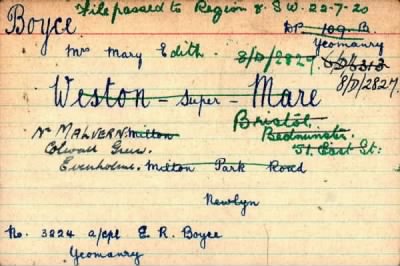 File passed to Region 8. S.W. 22-7-20
Boyce
DP 109 B.
Yeomanry
Mrs Mary Edith.
8/D/2827.
6/D/313
8/D/2827.
Weston - Super - Mare
Bristol.
Nr MALVERN Milton
Bedminster.
Colwall Green.
51. East St:
Evenholme. Milton Park Road
Newlyn
No. 3224 a/cpl E. R. Boyce
Yeomanry